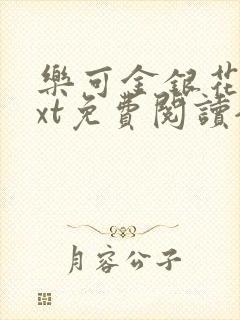 樂可金銀花
xt免費閱讀
月容公子